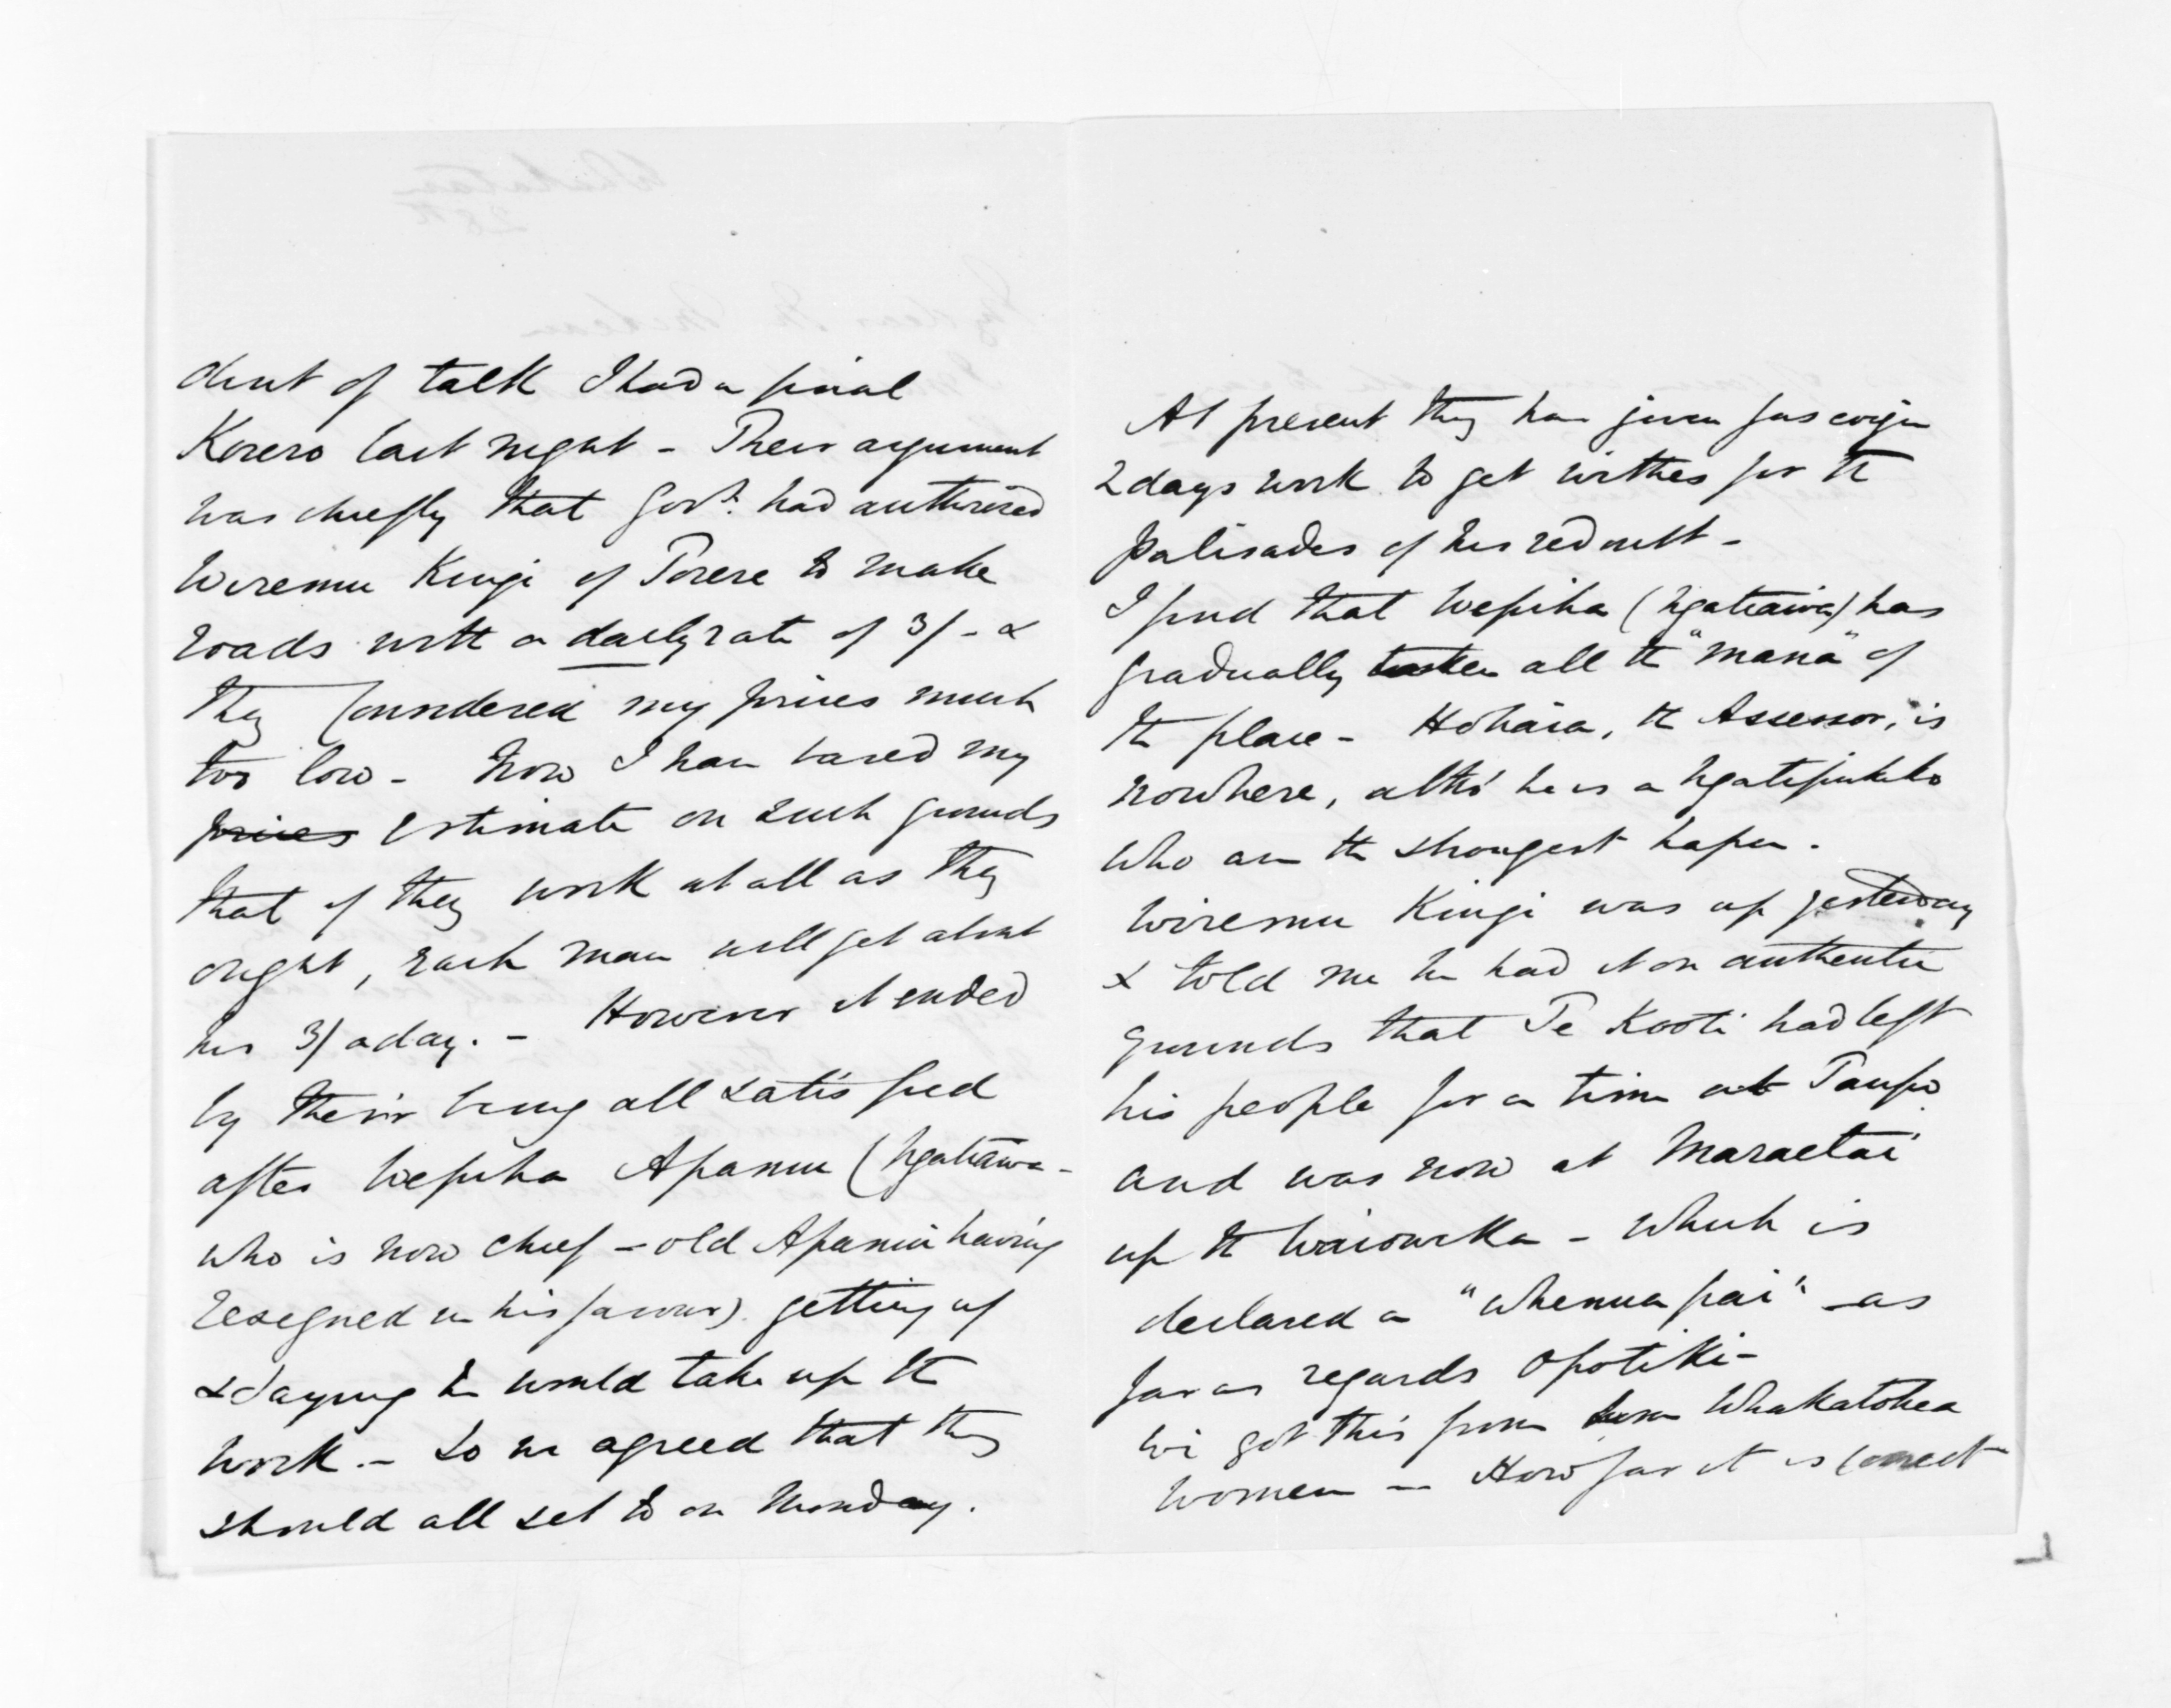 of talk I had a final
Korero last night - Their argument
was chiefly that Govt. had authorized
Wiremu Kingi of Torere to make
roads with a daily rate of 3/- &
they considered my prices much
too low - Now I have based my
prices estimate on such grounds
that if they work at all as they
ought, each man will get about
his 3/ a day. - However it ended
by their being all satisfied
after Wepiha Apanui (Ngatiawa -
who is now chief - old Apanui having
resigned in his favour). getting up
& saying he would take up the
work. - So we agreed that they
should all set to on Monday.
At present they have given
2 days work to get withes for the
palisades of his redoubt -
I find that Wepiha (Ngatiawa) has
gradually taken all the "mana" of
the place - Hohaia, the Assessor, is
nowhere, altho' he is a Ngatipukeko
who are the strongest hapu.
Wiremu Kingi was up yesterday
& told me he had it on authentic
grounds that Te Kooti had left
his people for a time at Taupo
and was now at Maraetai
up the Waioweka - which is
declared a "whenua pai" - as
far as regards Opotiki -
We got this from Whakatohea
women - How far it is correct